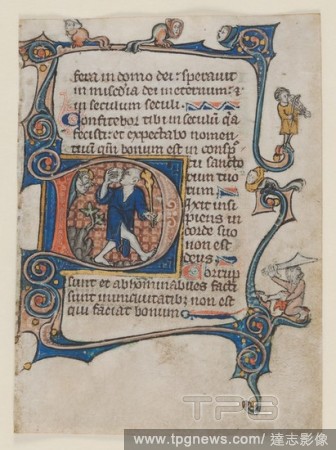 fera in domo dei: speravit
in mis̄dia dei in eternum: ⁊
in seculum seculi.
Confitebor tibi in seculū q̄a
fecisti: et expectabo nomen
tuū qm̄ bonum est in consp̄
tu sancto
rum tuo
rum
Dixit insi
piens in
corde suo
non est
deus
Corrup
sunt et abhominabiles facti
sunt in iniquitatib; non est
qui faciat bonum
TPG
www.tpgnews.com / 達志影像